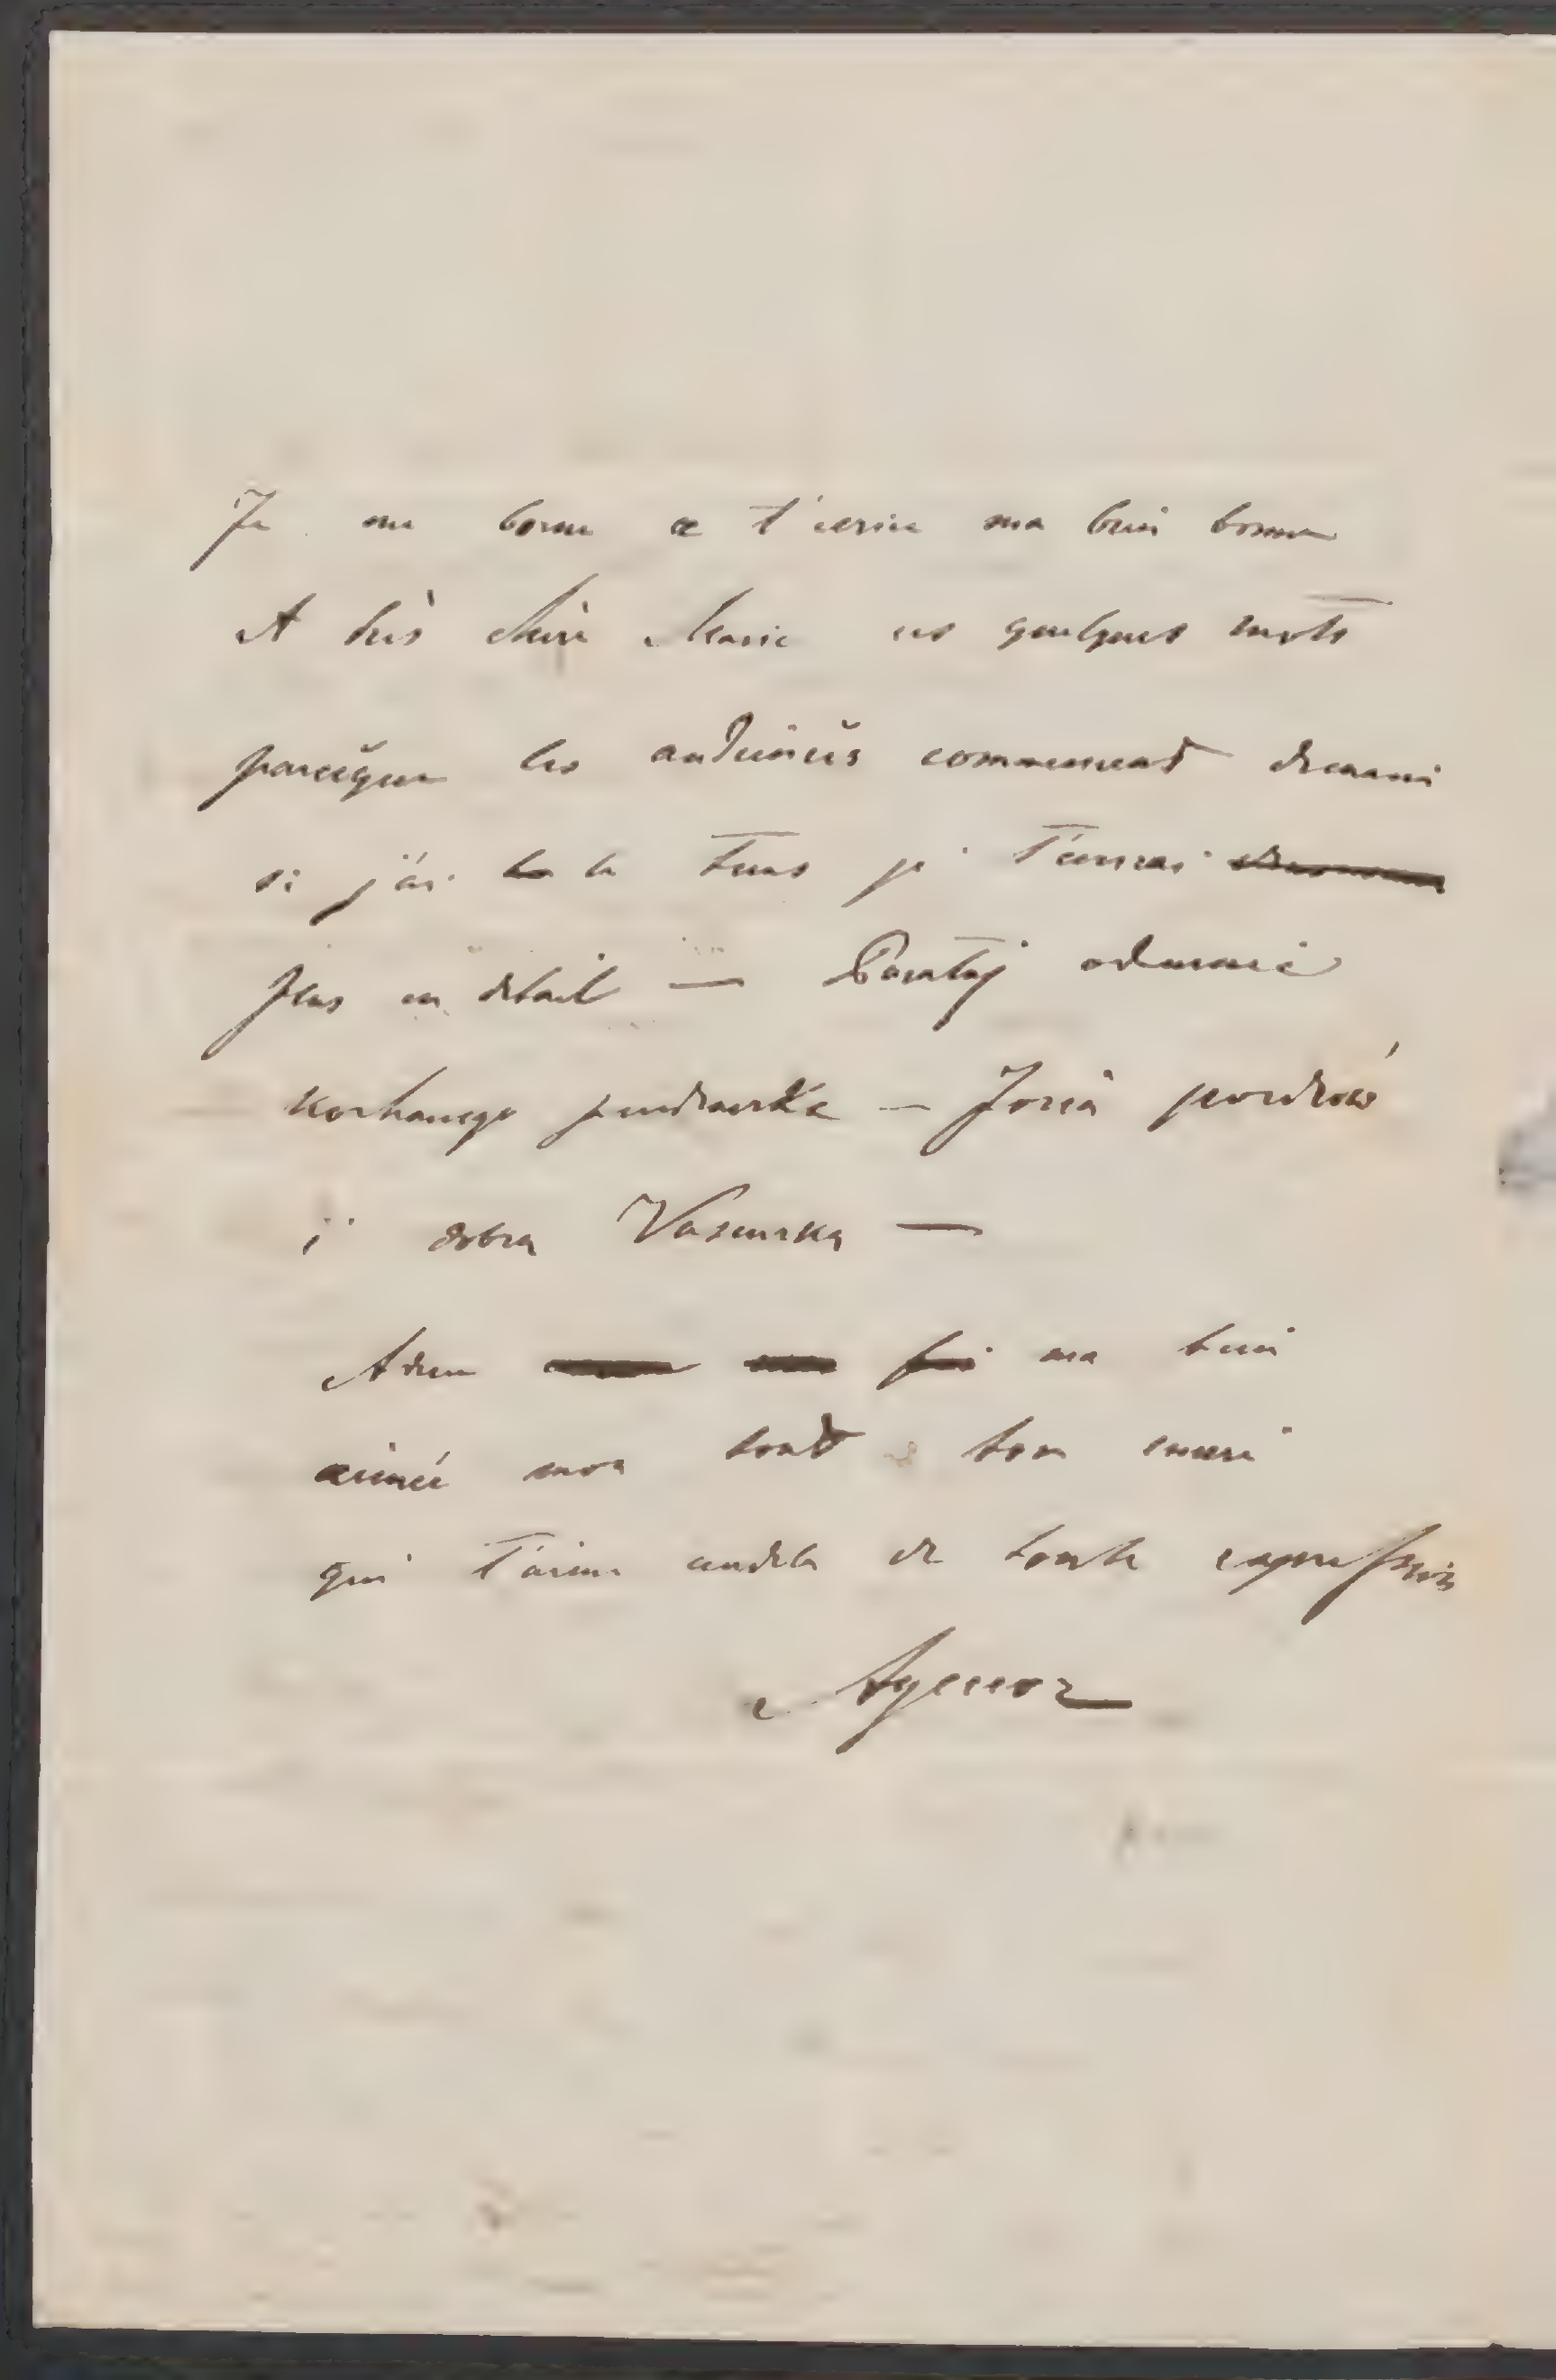 Je me borne a t'ecrire ma bien bonne
et très chère Marie ces quelques mots
parceque les audiences commencent demain
si j'ai le tems je t'écrirai
plus en détail — Pocałuj odemnie
kochanego pendraczka — Jozia pozdrow
i dobra
Adieu ma bien
aimée mon tout ton mari
qui t'aime audela de toute expression
Agenor